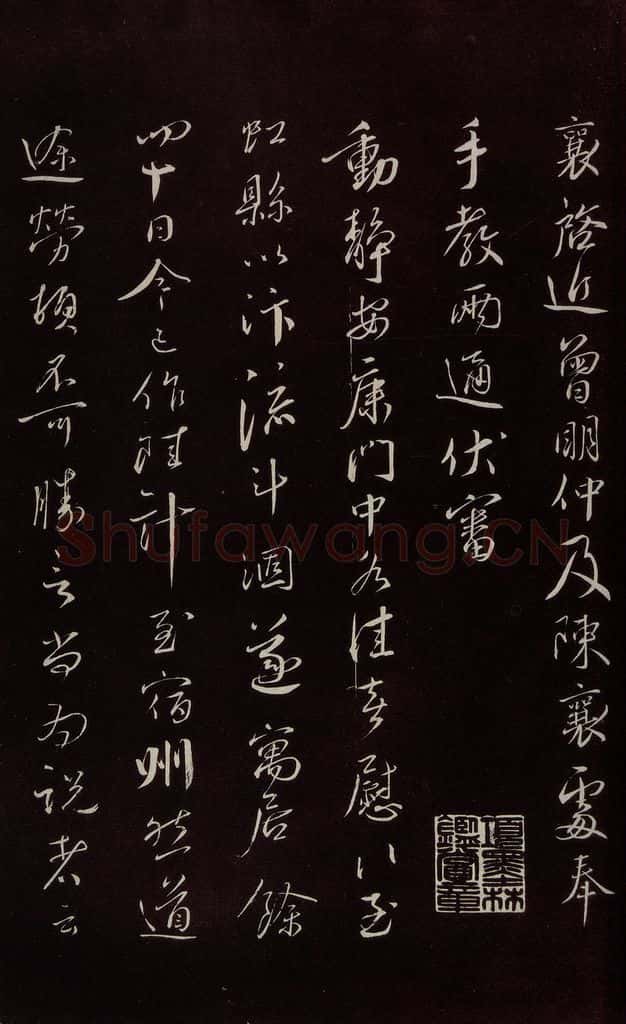 襄啓近曾明仲及陳襄處奉
手教兩通伏審
動靜安康門中各佳喜慰至
虹縣以汴流斗涸遂寓居餘
四十日今已作陸計至宿州然道
途勞頓不可勝言尚為說者云
項墨林
鑑賞章
Shufawang.CN